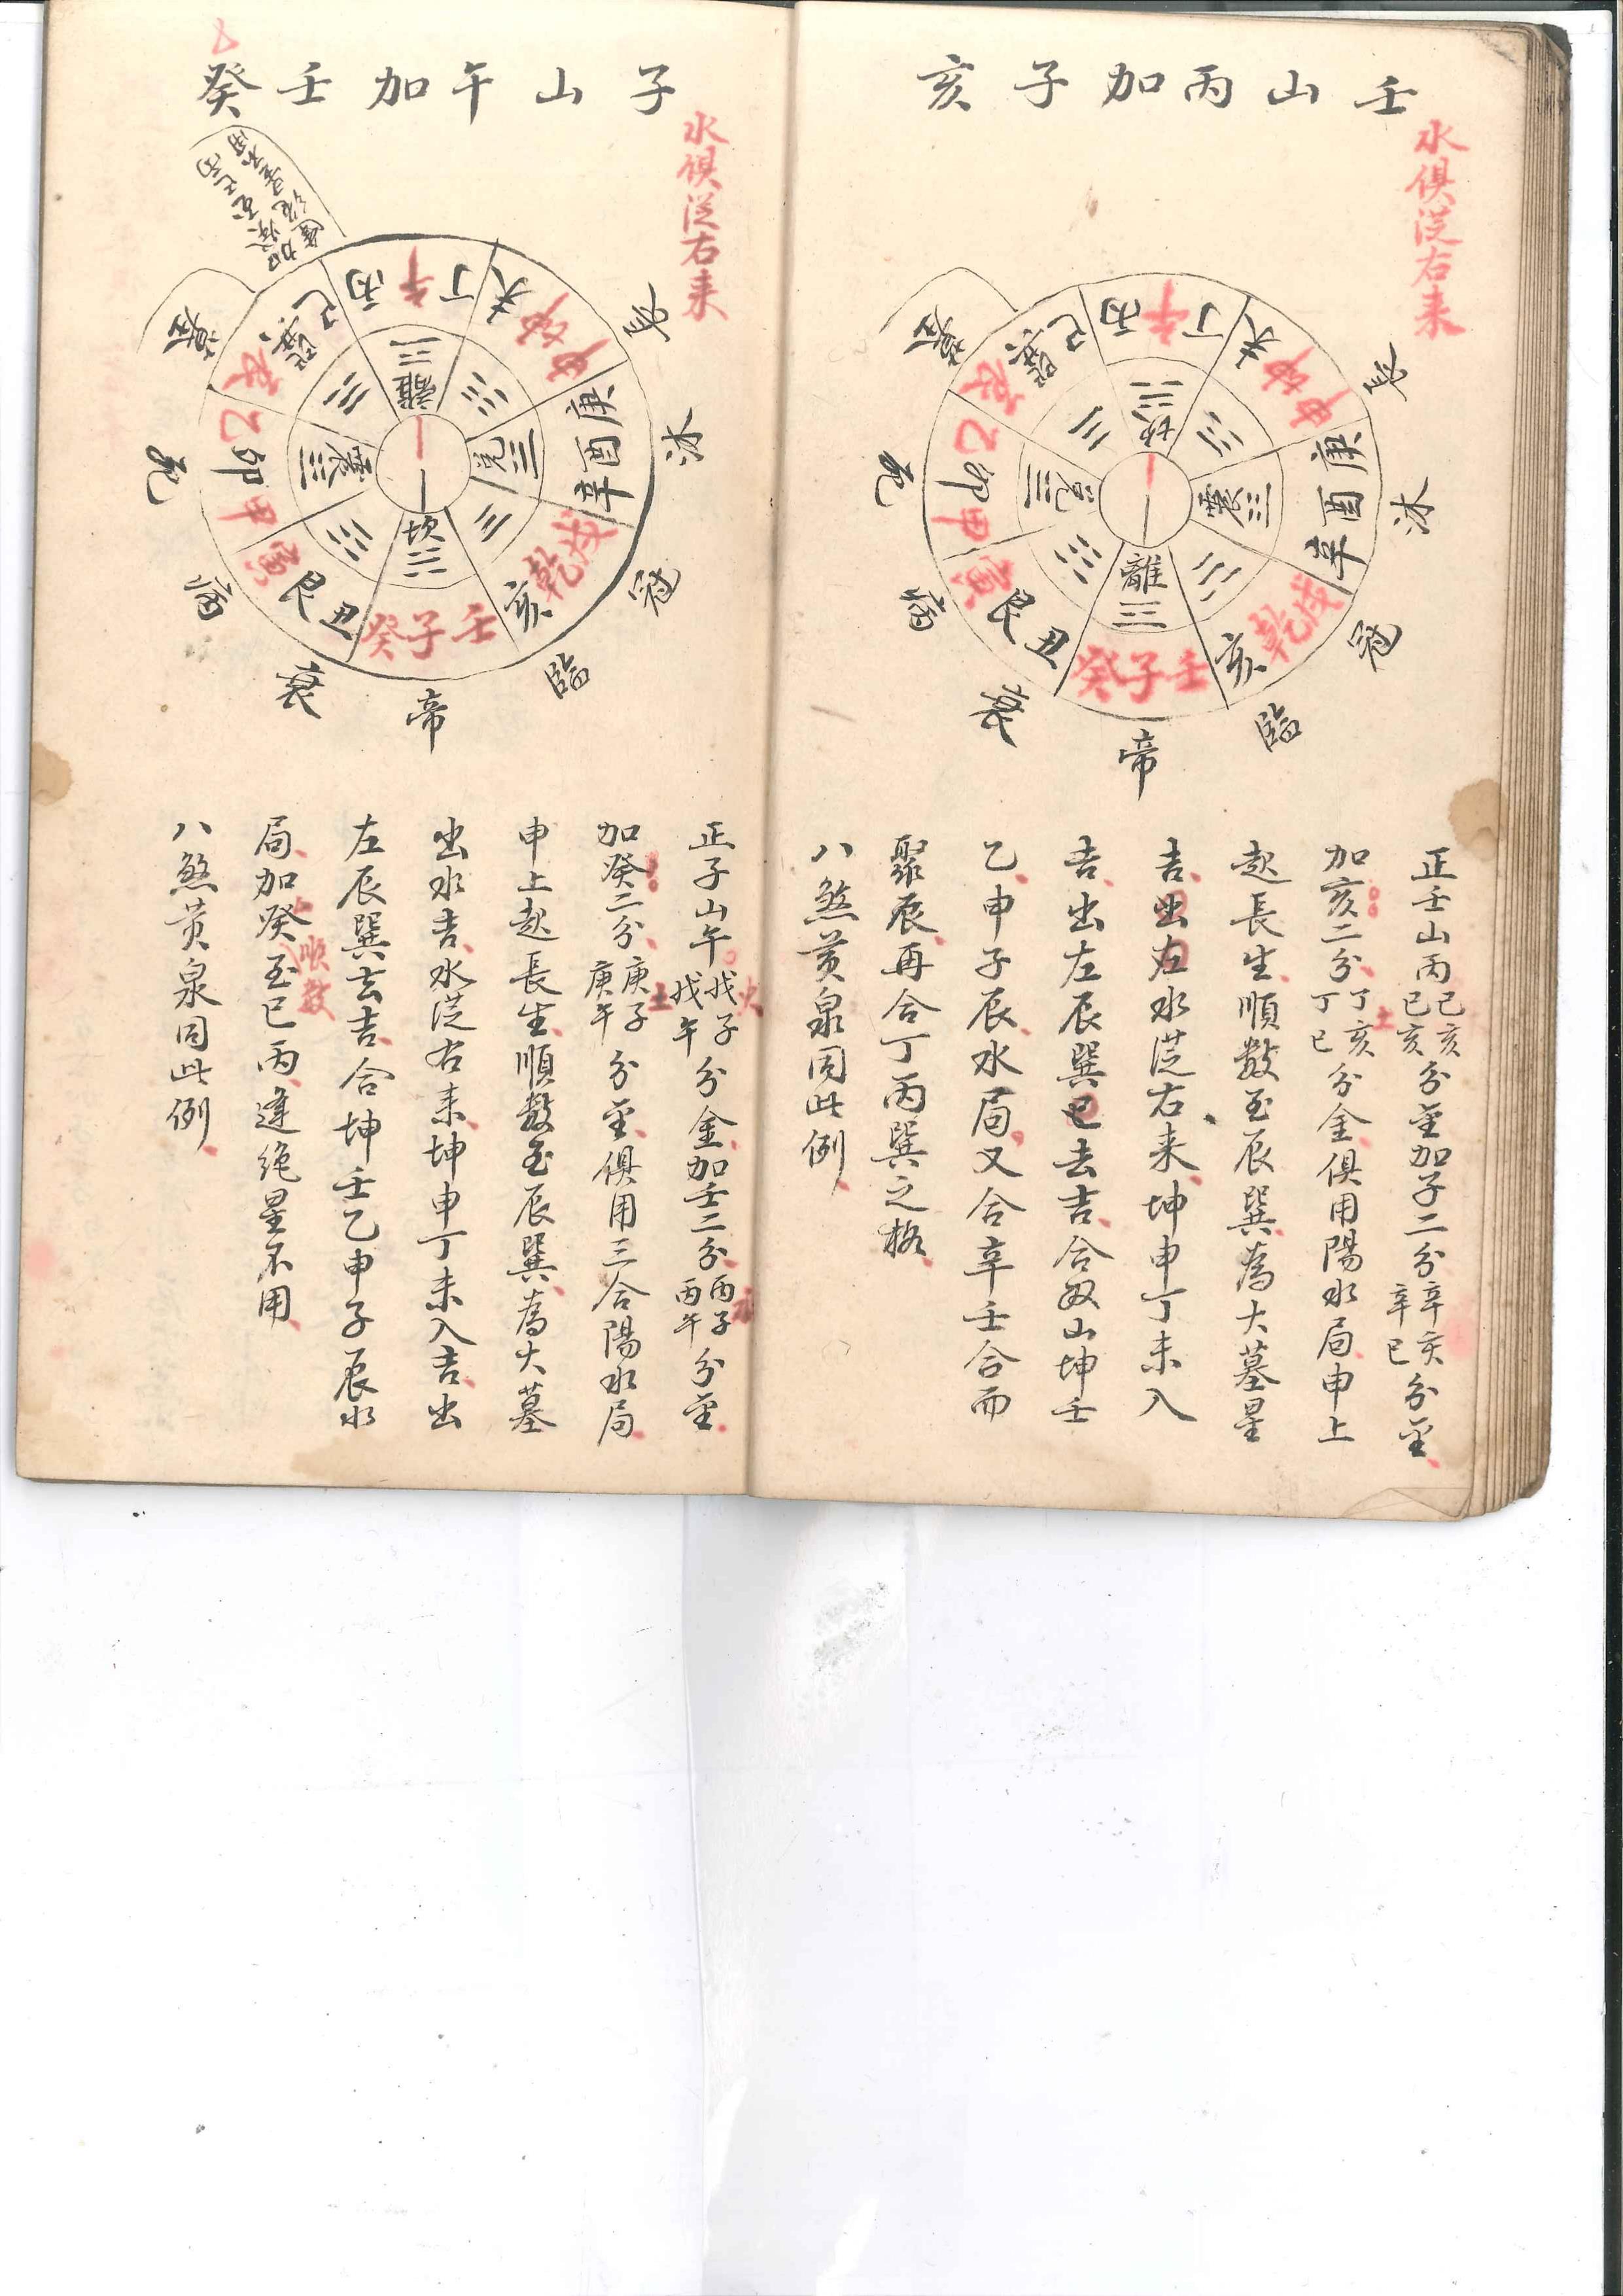 壬山丙加子亥
水俱從右来
午
丁
丙
未
坤
申
庚
酉
辛
戌
乾
亥
壬子癸
丑
艮
寅
甲
卯
乙
辰
巽
巳
坎
震
離
兌
長
沐
冠
臨
帝
衰
病
死
墓
正壬山丙己亥己亥分金加子二分辛亥辛巳分金
加亥二分丁亥丁巳分金俱用陽水局申上
土
起長生順數至辰巽為大墓星
吉出左水從右来坤申丁未入
吉出左辰巽巳去吉合奴山坤壬
乙申子辰水局又合辛壬合而
聚辰再合丁丙巽之格
八煞黄泉同此例
子山午加壬癸
水俱從右来
午
丁
丙
未
坤
申
庚
酉
辛
戌
乾
亥
壬子癸
丑
艮
寅
甲
卯
乙
辰
巽
巳
離
兌
坎
震
長
沐
冠
臨
帝
衰
病
死
墓
正子山午戊子戊午分金加壬二分丙子丙午分金
火
水
加癸二分庚子庚午分金俱用三合陽水局
土
申上起長生順數至辰巽為大墓
出水吉水從右来坤申丁未入吉出
左辰巽去吉合坤壬乙申子辰水
局加癸至巳丙逢絶星不用
順數
八煞黄泉同此例